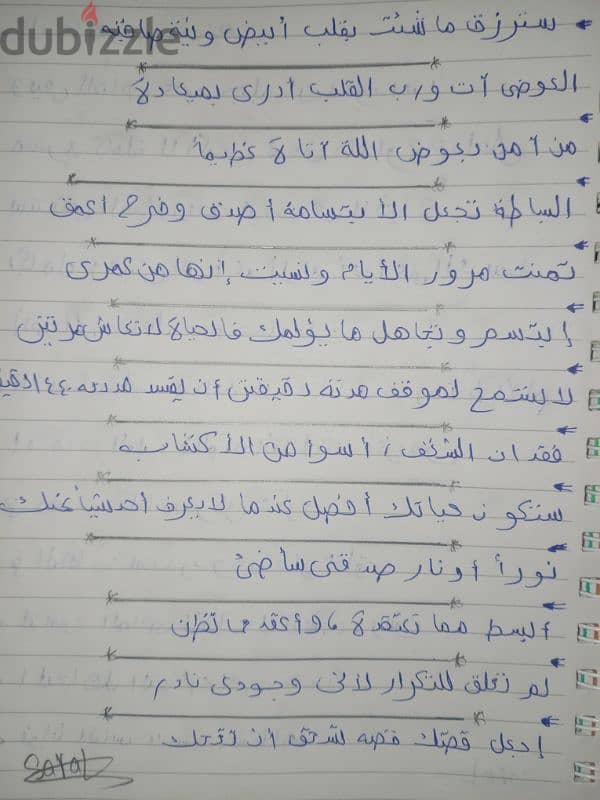 dubizzle
سترزق ما شئت بقلب أبيض ونية صافية
العوض آت ورب القلب أدرى بميعاده
من آمن بعوض الله أتاه عظيماً
البساطة تجعل الابتسامة أصدق وفرح أعمق
تمنت مرور الأيام ونسيت إنها من عمرى
إبتسم وتجاهل ما يؤلمك فالحياة لا تعاش مرتين
لا لموقف مدته دقيقتين أن يفسد
فقدان الشغف أسوأ من الأكتئاب
ستكون حياتك أفضل عندما لا يعرف أحد شيأ عنك
نوراً أو نار صدقنى سأضئ
أبسط مما تعتقده وأعقد مما تظن
لم نخلق للتكرار لأنى وجودى نادر
إجعل قصتك قصه تستحق أن تحك